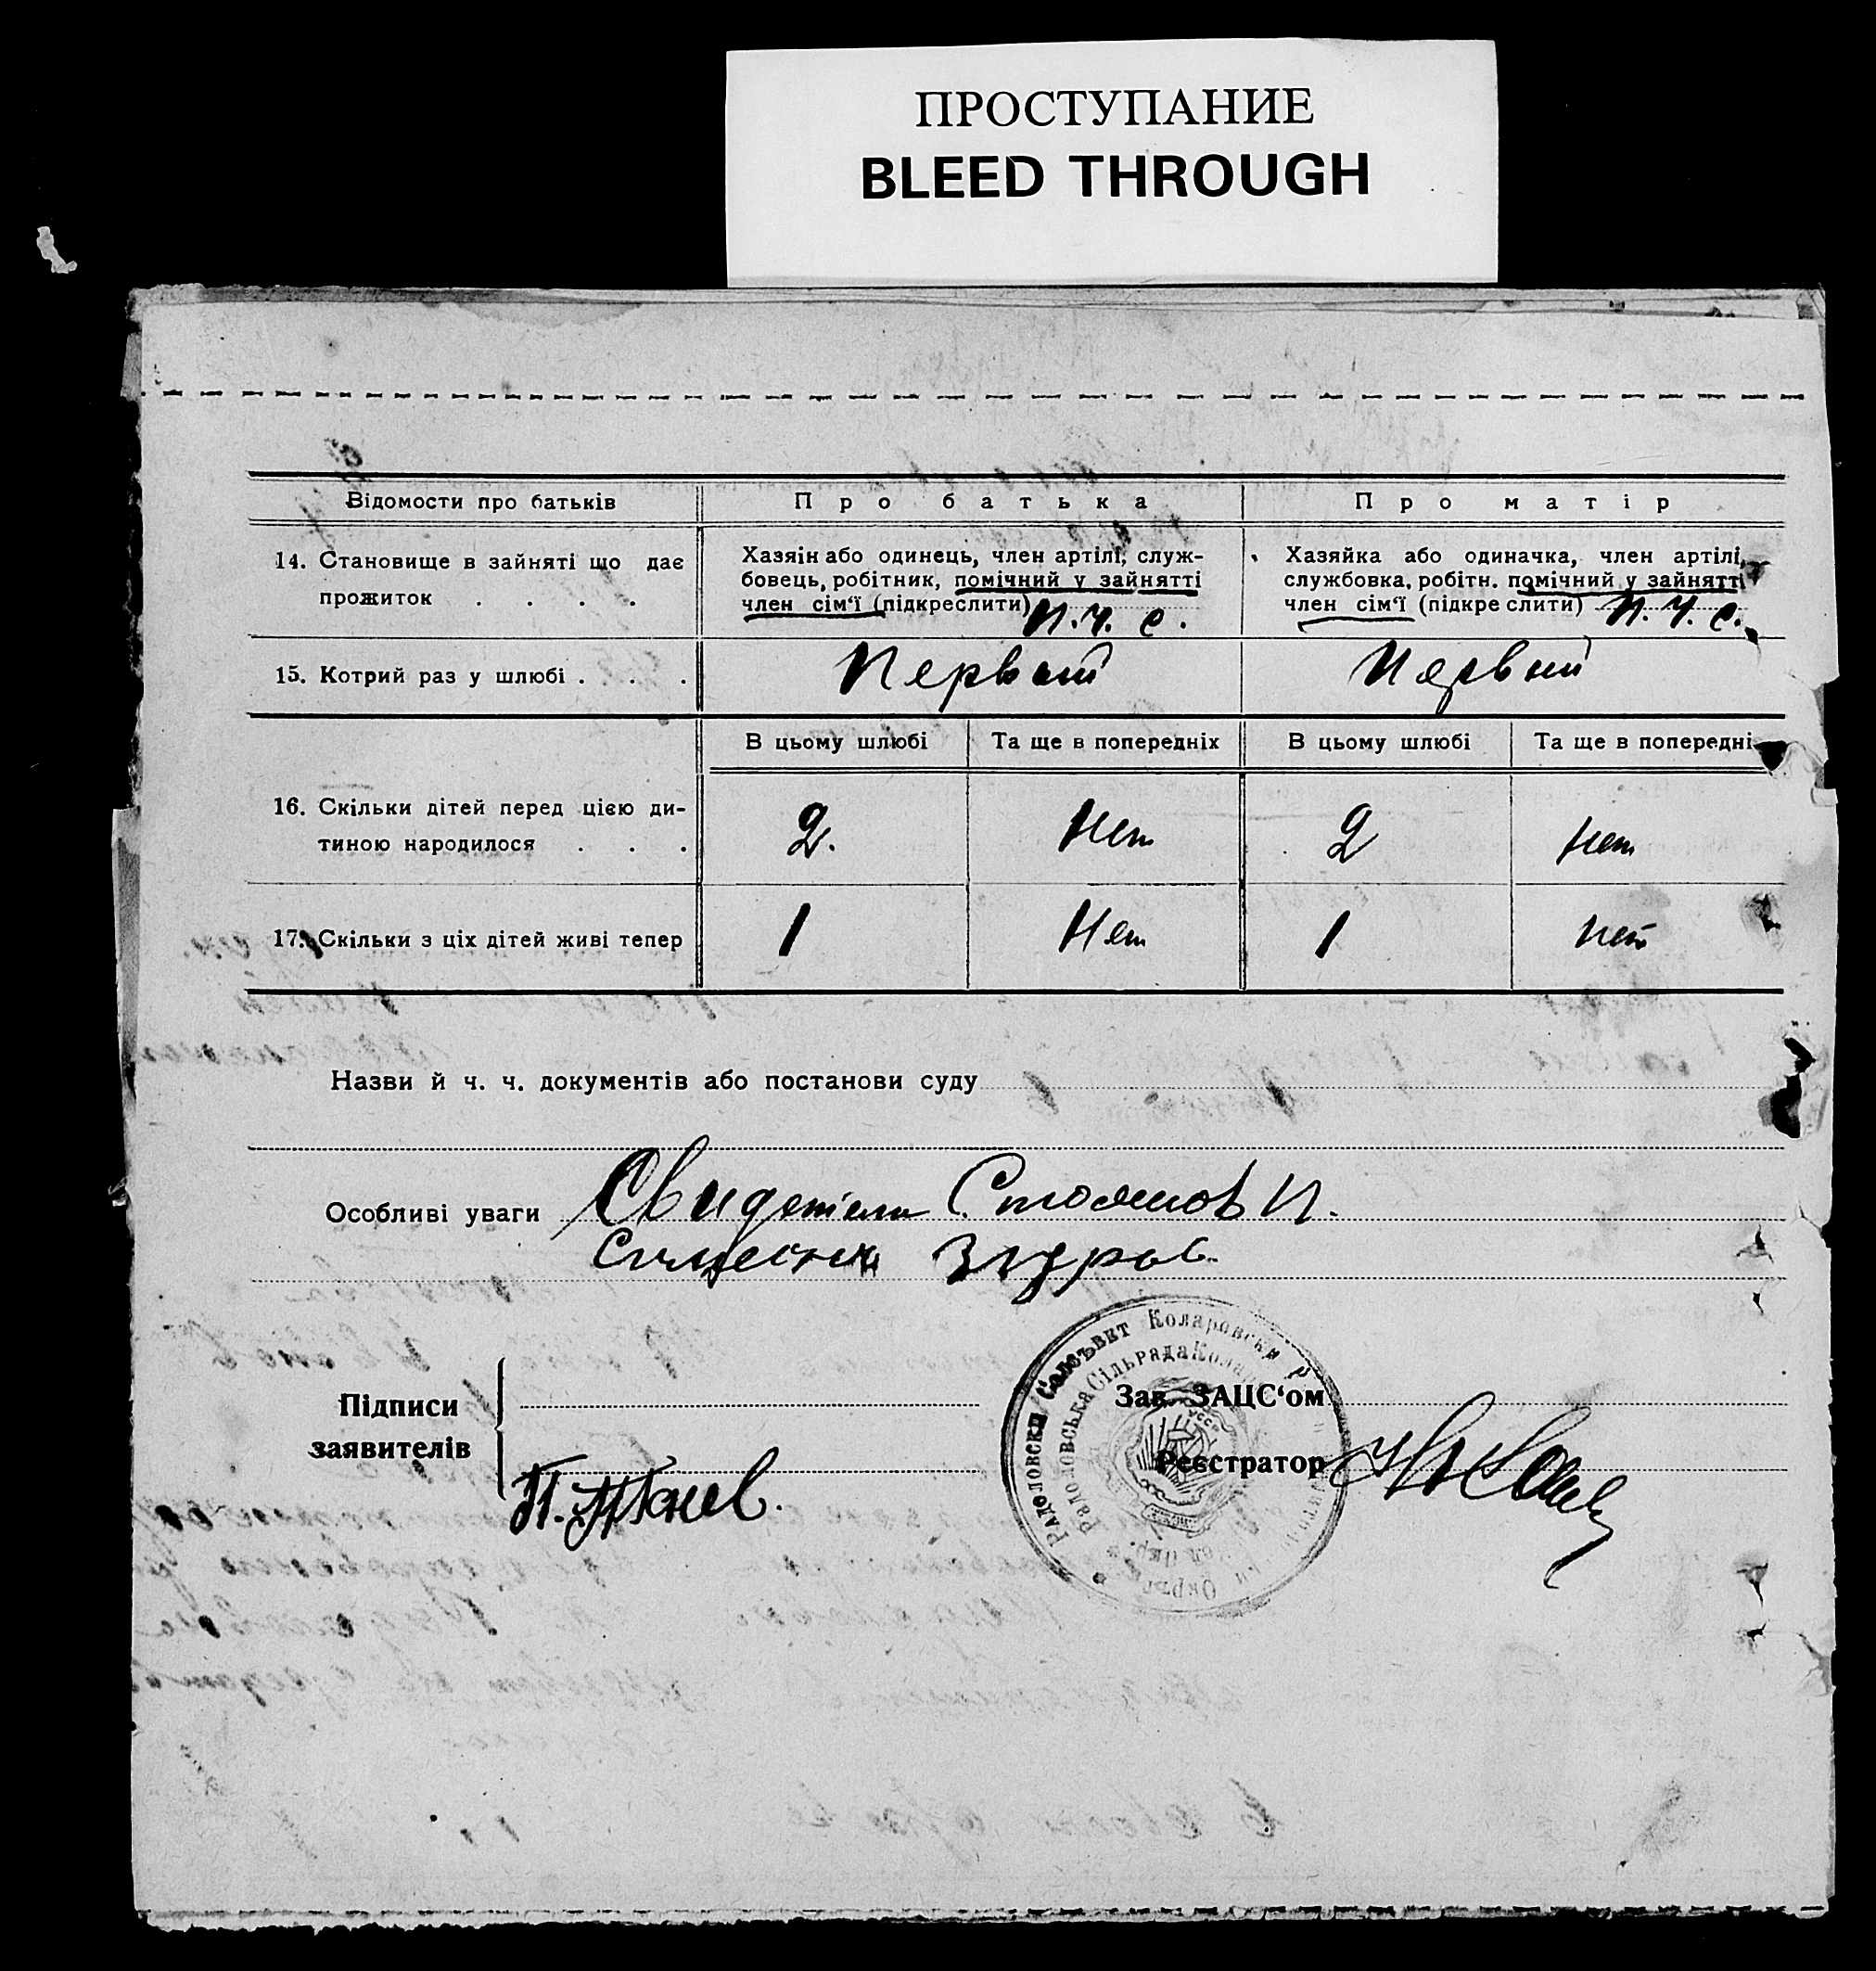 ПРОСТУПАНИЕ
BLEED THROUGH
Відомости про батьків
Про батька
Про матір
14. Становище в зайняті що дає
прожиток . . . .
Хазяін або одинець, член артілі, служ-
бовець, робітник, помічний у зайнятті
член сім‘ї (підкреслити) п. ч. с.
Хазяйка або одиначка, член артілі,
службовка, робітн. помічний у зайнятті
член сім‘ї (підкреслити) п. ч. с.
15. Котрий раз у шлюбі . . .
Первый
Первый
В цьому шлюбі
Та ще в попередніх
В цьому шлюбі
Та ще в попередні
16. Скільки дітей перед цією ди-
тиною народилося . . .
2.
Нет
2
нет
17. Скільки з ціх дітей живі тепер
1
Нет
1
нет
Назви й ч. ч. документів або постанови суду
Особливі уваги Свидетели Стоянов И.
Підписи
заявителів
Зав. ЗАЦС‘ом
Реєстратор
Радоловски Солсъвет Коларовски р
Радоловська Сільрада Кола